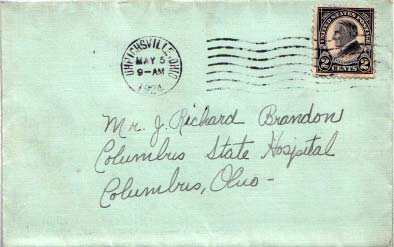 UHRICHSVILLE, OHIO
MAY 5
9-AM
1924
UNITED STATES POSTAGE
2 CENTS 2
Mr. J. Richard Brandon
Columbus State Hospital
Columbus, Ohio -